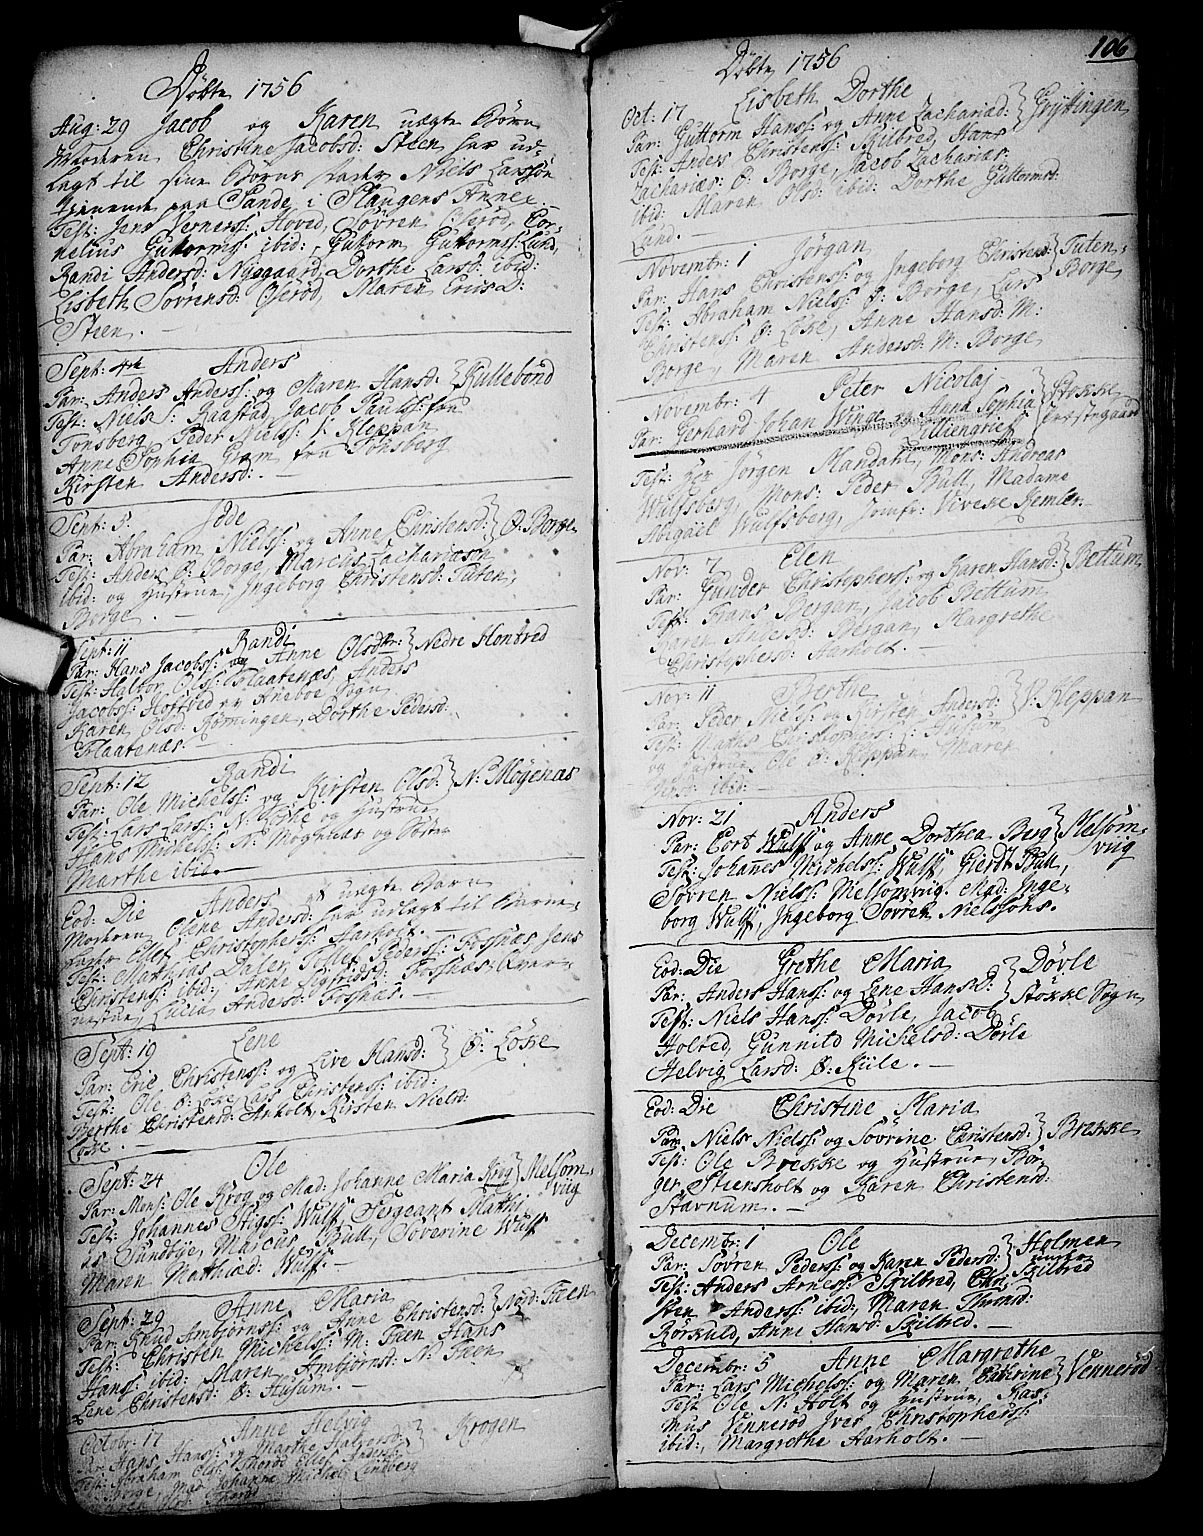 Döbte 1756
Aug: 29 Jacob og Karen uægte Börn
Moderen Christine Jacobsd: Steen har ud-
lagt til sine Börns Fader Niels Larssön
tienende paa Sande i Slaugens Annex. —
Test: Jens Verners: Hoved, Sövren Oseröd, Cor-
nelius Guttormss: ibid:, Guttorm Guttormss: Lund,
Randi Andersd: Nygaard, Dorthe Larsd: ibid:
Lisbeth Sövrensd: Oseröd, Maren Erics D:
Steen. —
Sept: 4de Anders
Par: Anders Anderss: og Maren Hansd: } Rullebönd
Test: Niels S: Raastad, Jacob Paulss: fra
Tonsberg Peder Nielss: S: Kleppan
Anne Sophia fra Tonsberg
Kirsten Andersd: —
Sept: 5. Idde
Par: Abraham Nielss: og Anne Christensd: } Ø: Borge
Test: Anders Ø: Borge, Marcus Zachariæsön
ibid: og Hustrue, Ingeborg Christensd: Tuten-
Borge. —
Sept: 11 Randi
Par: Hans Jacobss: og Anne Olsdtr: } Nedre Hontved
Test: Halvor Olss: Flaatenæs, Anders
Jacobss: Hortved Aneboe Sogn
Karen Olsd: Rönningen, Dorthe Pedersd:
Flaatenæs. —
Sept: 12 Randi
Par: Ole Michelss: og Kirsten Olsd: } N: Mogenæs
Test: Lars Larss: N: Löke og Hustrue
Hans Michelss: N: Mognæs og Söster
Marthe ibid. —
Eod: Die Anders et uægte Barn
Moderen Olene Andersd: har udlagt til Barne-
fader Ellef Christophers: Aarholt. —
Test: Mathias Dalen, Tollef Pederss: Fosnæs, Jens
Christenss: ibid:, Anne Sigfridsd: Fosnæs:
Lucia Andersd: Fossnæs. —
Sept: 19 Lene } Ø: Löke
Par: Eric Christenss: og Live Hansd:
Test: Ole Ø: Löke Lars Christenss: ibid:
Berthe Christensd: Arholt, Kirsten Nielsd:
Löke. —
Sept: 24 Ole
Par: Mons: Ole Krog og Mad: Johanne Maria Krog } Melsom-
viig
Test: Johannes Stigss: Wulf, Sergeant Mathi-
as Sundbye, Marcus Bull, Söverine Wulf
Maren Mathiæd: Wulf. —
Sept: 29 Anne Maria
Par: Knud Ambjörnss: og Anne Christensd: } Nord: Feen
Test: Christen Michelss: M: Feen Hans
Hanss: ibid: Maren Ambjörnsd: N: Feen
Lene Christensd: Ø: Husum. —
Octobr: 17 Anne Helvig
Par: Hans Hanss: og Marthe Halvorsd: } Krogen
Test: Abraham Olss: Thoröd Ellef Anderss:
Borge, Mad: Johanne Michel Lindberg
Olsd: Thoröd
106
Döbte 1756
Oct: 17 Lisbeth Dorthe
Par: Guttorm Hanss: og Anne Zachariæd: } Gryttingen
Test: Anders Christenss: Skilbred, Hans
Zachariæs: Ø: Borge, Jacob Zachariæs:
ibid: Maren Olsd: ibid: Dorthe Guttormsd:
Lund. —
Novembr: 1 Jörgan
Par: Hans Christenss: og Ingeborg Christensd: } Tuten-
Borge
Test: Abraham Nielss: Ø: Borge, Lars
Christenss: Ø: Löke, Anne Hansd: M:
Borge, Maren Andersd: M: Borge
Novembr: 4 Peter Nicolaj } Stokke
Præstegaard
Par: Gerhard Johan Winde og Anna Sophia
Lilliengrief
Test: Her Jörgen Mandahl, Mons: Andreas
Wulfsberg, Mons: Peder Bull, Madame
Abigail Wulfsberg, Jomfr: Viveke Hemler.
Nov: 7 Elen
Par: Gunder Christopherss: og Karen Hansd: } Bettum
Test: Frans Bergan, Jacob Bettum,
Karen Andersd: Bergan, Margrethe
Christophersd: Aarholt. —
Nov: 11 Berthe
Par: Peder Nielss: og Kirsten Andersd: } S: Kleppan
Test: Mathis Christophers: Husum
og Hustrue, Ole Ø: Kleppan, Maren
ibid: —
Nov: 21 Anders
Par: Cort Wulf og Anne Dorthea Berg } Melsom-
viig
Test: Johannes Michelss: Wulf, Giert Bull,
Sövren Nielss: Melsomvig. Mad: Inge-
borg Wulf, Ingeborg Sövren Nielssöns.
Eod: Die Grethe Maria } Dövle
Stokke Sogn
Par: Anders Hanss: og Lene Hansd:
Test: Niels Hanss: Dövle, Jacob
Holted, Gunnild Michelsd: Dövle
Helvig Larsd: Ø: Riile. —
Eod: Die Christine Maria
Par: Niels Nielss: og Sövrine Christensd: } Brekke
Test: Ole Brekke og Hustrue, Bör-
ger Steensholt og Karen Christensd:
Stavnum. —
Decembr: 1 Ole
Par: Sövren Pederss: og Karen Pedersd: } Holmen
under
Skilbred
Test: Anders Arness: Skilbred, Chri-
sten Anderss: ibid:, Maren Thronsd:
Rörkuld, Anne Hansd: Skilbred. —
Decembr: 5 Anne Margrethe
Par: Lars Michelss: og Maren Cathrine } Venneröd
Test: Ole N: Holt og Hustrue, Ras-
mus Venneröd Iver Christopherss:
ibid:, Margrethe Aarholt. —